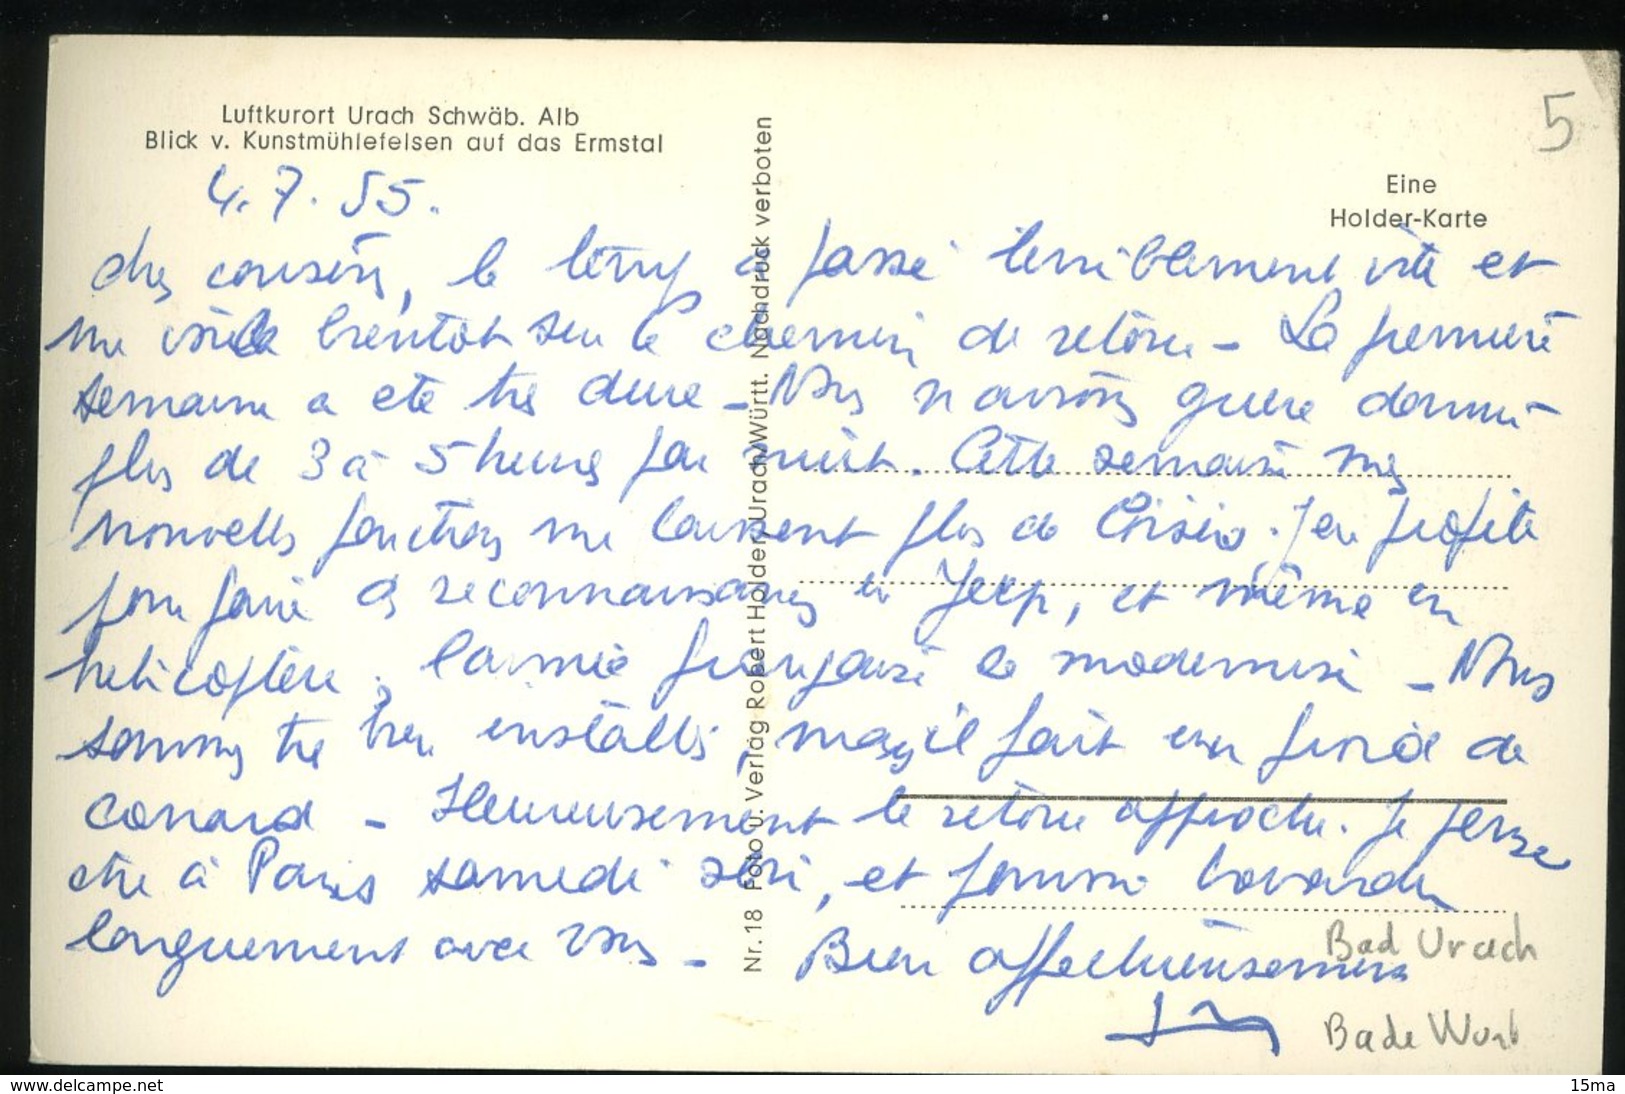 Luftkurort Urach Schwäb. Alb
Blick v. Kunstmühlefelsen auf das Ermstal
5
Eine
Holder-Karte
4.7.55.
chers cousins, le temps a passé terriblement vite et
me voilà bientôt sur le chemin de retour - La première
semaine a été très dure - Nous n'avons guère dormi
plus de 3 à 5 heures par nuit. Cette semaine mes
nouvelles fonctions me laissent plus de loisirs. J'en profite
pour faire des reconnaissances en Jeep, et même en
hélicoptère, l'armée française se modernise - Nous
sommes très bien installés, mais il fait un froid de
canard - Heureusement le retour approche. Je pense
être à Paris samedi soir, et pouvoir bavarder
longuement avec vous - Bien affectueusement
Nr. 18 Foto u. Verlag Robert Holder, Urach/Württ. Nachdruck verboten
Bad Urach
Bade Wurt
delcampe.net
15ma